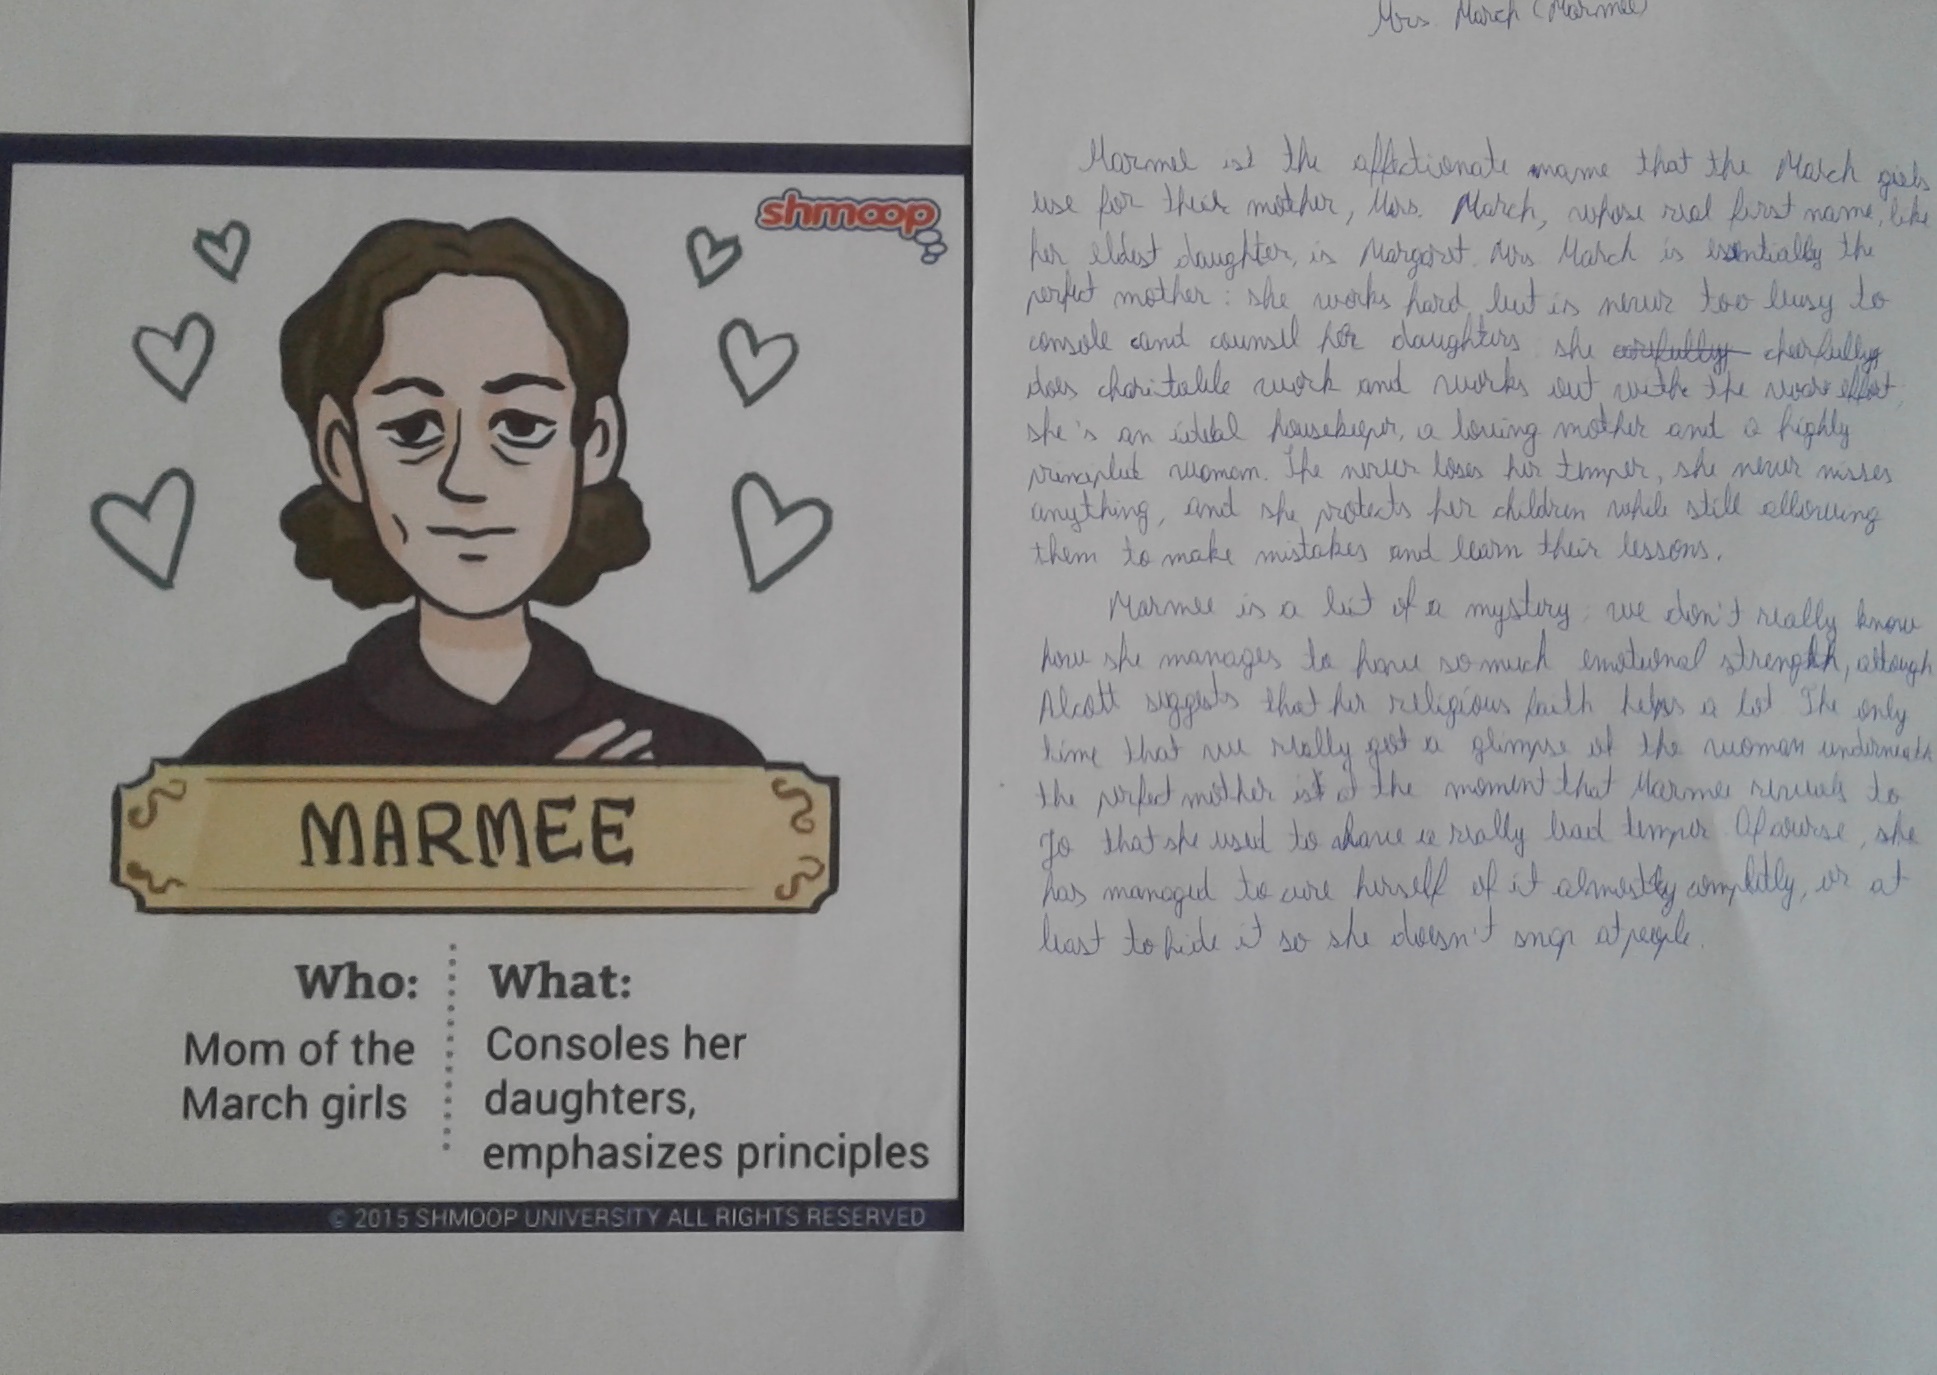 shmoop
MARMEE
Who:
Mom of the
March girls
What:
Consoles her
daughters,
emphasizes principles
© 2015 SHMOOP UNIVERSITY ALL RIGHTS RESERVED
Mrs. March (Marmee)
Marmee is the affectionate name that the March girls
use for their mother, Mrs. March, whose real first name, like
her eldest daughter, is Margaret. Mrs March is essentially the
perfect mother: she works hard but is never too busy to
console and counsel her daughters she carefully cheerfully
does charitable work and works out with the war effort,
she's an ideal housekeeper, a loving mother and a highly
principled woman. The never loses her temper, she never misses
anything, and she protects her children while still allowing
them to make mistakes and learn their lessons.
Marmee is a bit of a mystery; we don't really know
how she manages to have so much emotional strength, altough
Alcott suggests that her religious faith helps a lot The only
time that we really get a glimpse of the woman underneath
the perfect mother is at the moment that Marmee reveals to
Jo that she used to have a really bad temper Of course, she
has managed to cure herself of it almost completly, or at
least to hide it so she doesn't snap at people.